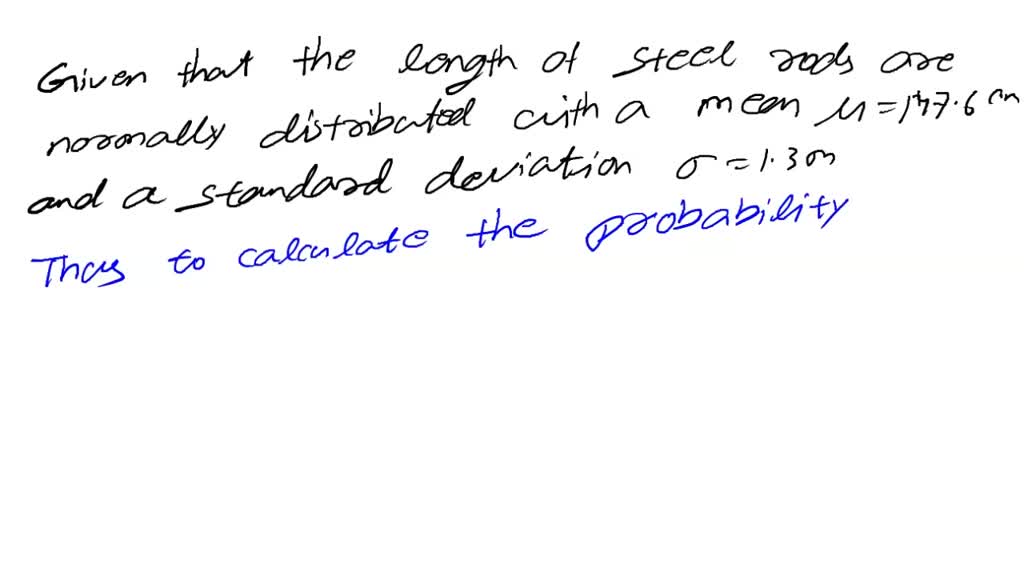 Given that the length of steel rods are
normally distributed with a mean μ = 147.6 cm
and a standard deviation σ = 1.3 cm
Thus to calculate the probability